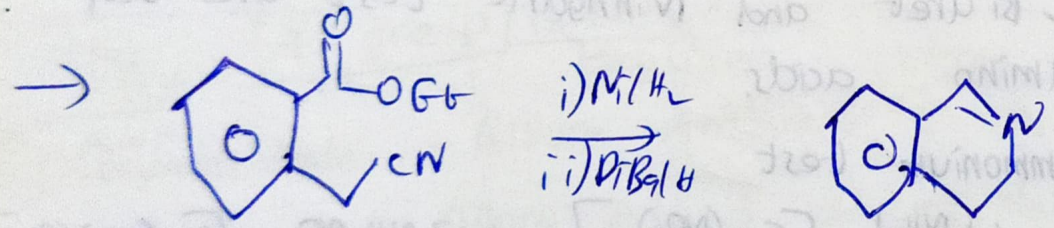 →
O
OEt
CN
i) Ni/H₂
ii) DiBal H
N